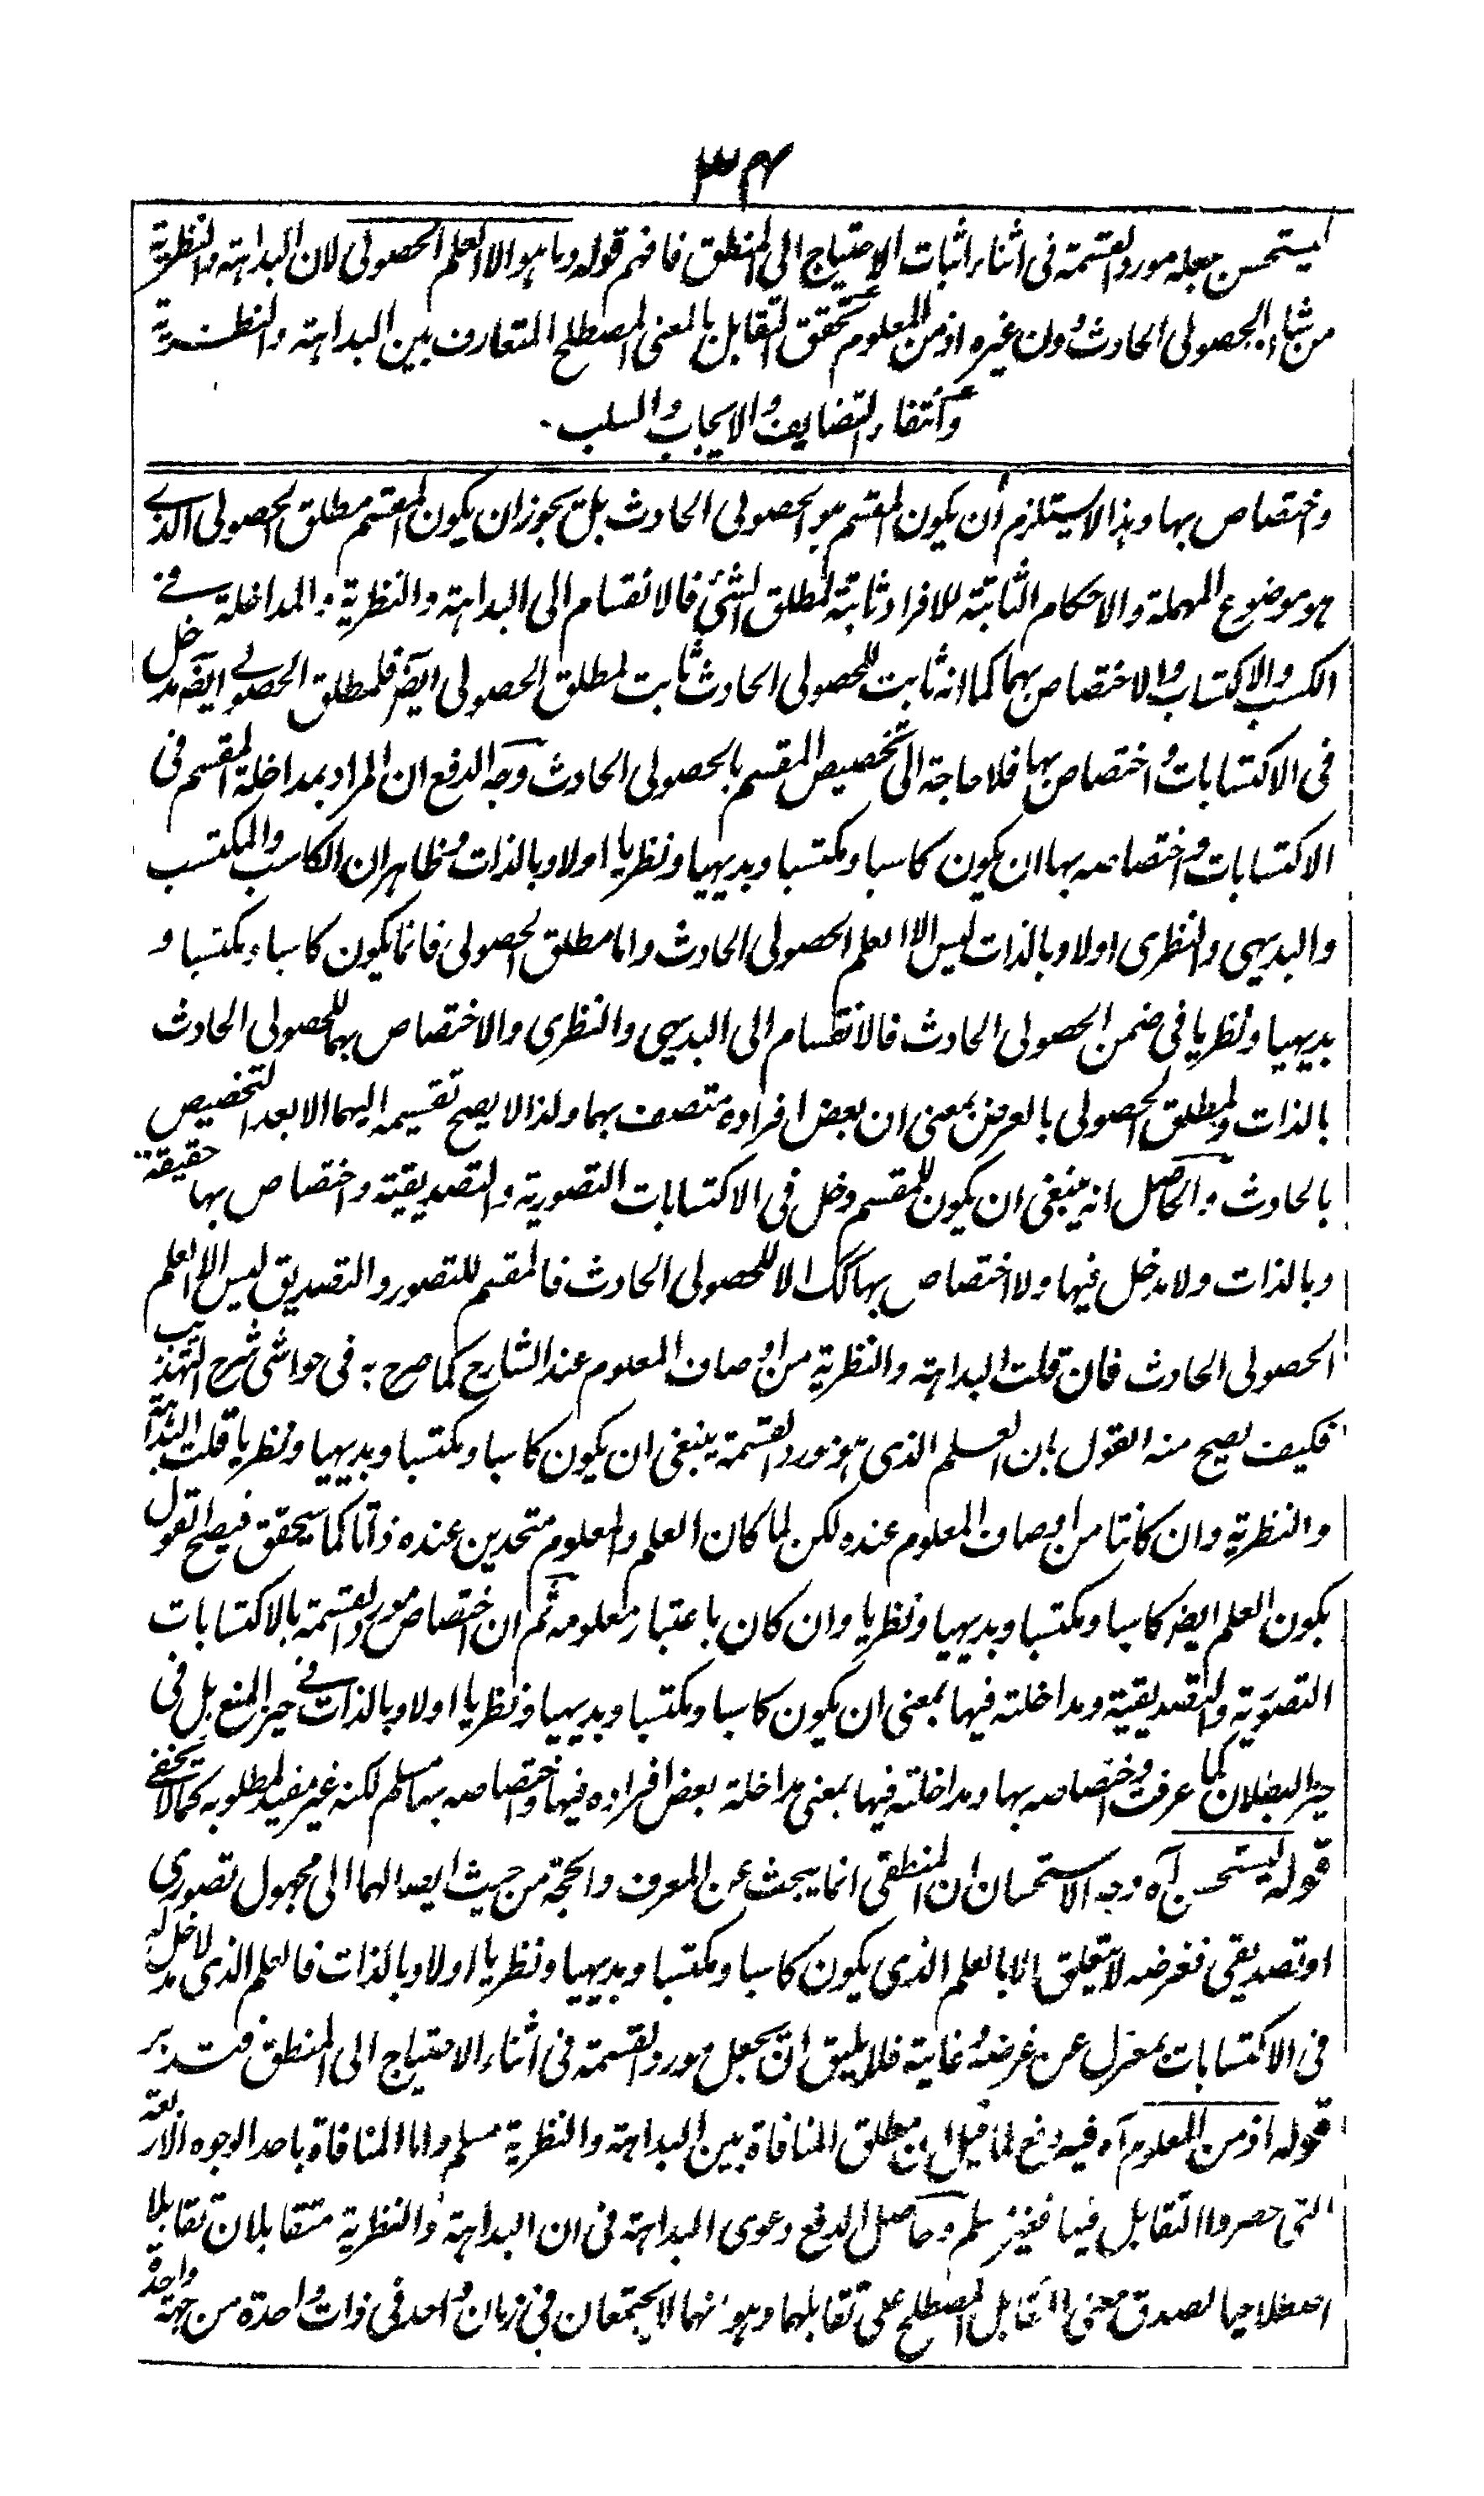 ۳۴
ليستحسن جعله مورد القسمة فى اثناء اثبات الاحتياج الى المنطق فافهم قوله وما هو الا العلم الحصولى لان البداهة والنظرية
من شان الحصولى الحادث دون غيره اذ من المعلوم تحقق التقابل بالمعنى المصطلح المتعارف بين البداهة والنظرية
وانتفاء التضايف والايجاب والسلب۔
واختصاص بها وهذا لا يستلزم ان يكون المقسم هو الحصولى الحادث بل يجوز ان يكون المقسم مطلق الحصولى الذى
هو موضوع المهملة والاحكام الثابتة للافراد ثابتة لمطلق الشئ فالانقسام الى البداهة والنظرية والمداخلة فى
الكسب والاكتساب والاختصاص بهما كما انه ثابت للحصولى الحادث ثابت لمطلق الحصولى ايضا فلمطلق الحصولى ايضا مدخل
فى الاكتسابات واختصاص بها فلا حاجة الى تخصيص المقسم بالحصولى الحادث وجه الدفع ان المراد بمداخلة المقسم فى
الاكتسابات واختصاصه بها ان يكون كاسبا ومكتسبا وبديهيا ونظريا اولا وبالذات وظاهر ان الكاسب والمكتسب
والبديهى والنظرى اولا وبالذات ليس الا العلم الحصولى الحادث واما مطلق الحصولى فانما يكون كاسبا ومكتسبا و
بديهيا ونظريا فى ضمن الحصولى الحادث فالانقسام الى البديهى والنظرى والاختصاص بهما للحصولى الحادث
بالذات ولمطلق الحصولى بالعرض بمعنى ان بعض افراده متصف بهما ولذا لا يصح تقسيمه اليهما الا بعد التخصيص
بالحادث والحاصل انه ينبغى ان يكون للمقسم دخل فى الاكتسابات التصورية والتصديقية واختصاص بها حقيقة
وبالذات ولا مدخل فيها ولا اختصاص بها كك الا للحصولى الحادث فالمقسم للتصور والتصديق ليس الا العلم
الحصولى الحادث فان قلت البداهة والنظرية من اوصاف المعلوم عند الشارح كما صرح به فى حواشى شرح التهذيب
فكيف يصح منه القول بان العلم الذى هو مورد القسمة ينبغى ان يكون كاسبا ومكتسبا وبديهيا ونظريا قلت البداهة
والنظرية وان كانتا من اوصاف المعلوم عنده لكن لما كان العلم والمعلوم متحدين عنده ذاتا كما سيحقق فيصح القول
بكون العلم ايضا كاسبا ومكتسبا وبديهيا ونظريا وان كان باعتبار معلومه ثم ان اختصاص مورد القسمة بالاكتسابات
التصورية والتصديقية ومداخلته فيها بمعنى ان يكون كاسبا ومكتسبا وبديهيا ونظريا اولا وبالذات فى حيز المنع بل فى
حيز البطلان كما عرفت واختصاصه بها ومداخلته فيها بمعنى مداخلة بعض افراده فيها واختصاصه بها مسلم لكنه غير مفيد لمطلوبه كما لا يخفى
قوله ليستحسن آه وجه الاستحسان ان المنطقى انما يبحث عن المعرف والحجة من حيث ايصالهما الى مجهول تصورى
او تصديقى فغرضه لا يتعلق الا بالعلم الذى يكون كاسبا ومكتسبا وبديهيا ونظريا اولا وبالذات فالعلم الذى لا مدخل له
فى الاكتسابات بمعزل عن غرضه وغايته فلا يليق ان يجعل مورد القسمة فى اثناء الاحتياج الى المنطق فتدبر
قوله اذ من المعلوم آه فيه دفع لما قيل ان مطلق المنافاة بين البداهة والنظرية مسلم واما المنافاة باحد الوجوه الاربعة
التى حصروا التقابل فيها فغير مسلم وحاصل الدفع دعوى البداهة فى ان البداهة والنظرية متقابلان تقابلا
اصطلاحيا لصدق معنى التقابل المصطلح على تقابلهما وهو انهما لا يجتمعان فى زمان واحد فى ذات واحدة من جهة واحدة